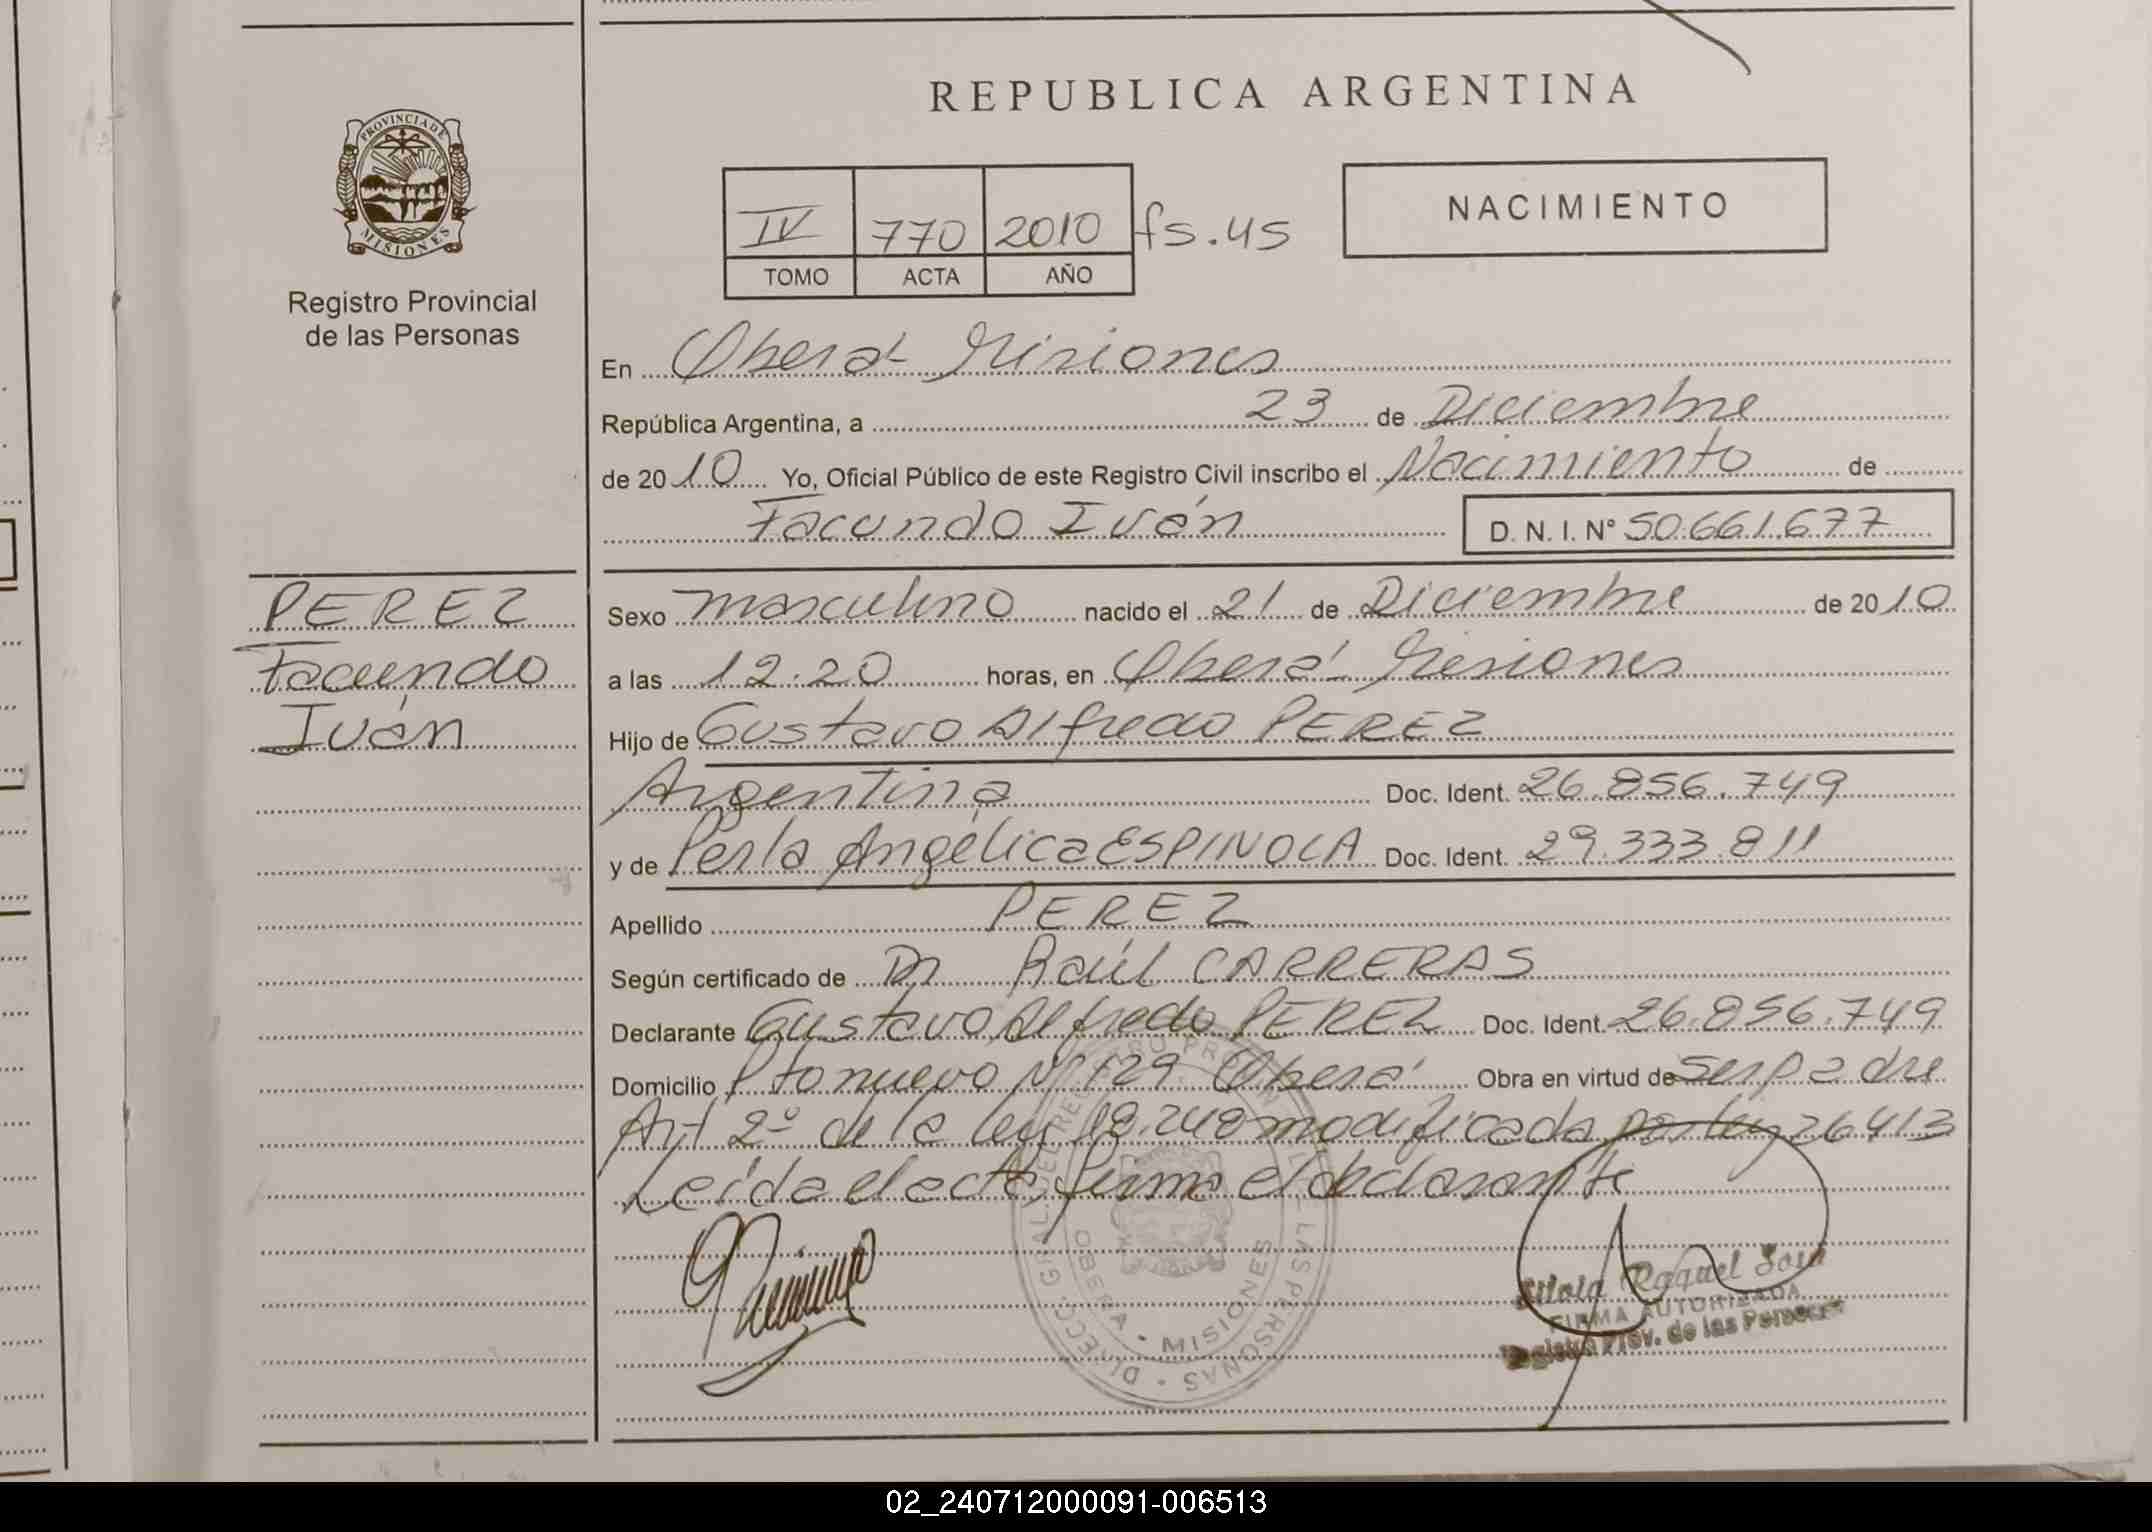 REPUBLICA ARGENTINA
PROVINCIA DE
MISIONES
Registro Provincial
de las Personas
IV 770 2010 fs. 45
TOMO ACTA AÑO
NACIMIENTO
En Oberá - Misiones
República Argentina, a 23 de Diciembre
de 2010 Yo, Oficial Público de este Registro Civil inscribo el Nacimiento de
Facundo Iván D. N. I. Nº 50.661.677
PEREZ
Facundo
Iván
Sexo masculino nacido el 21 de Diciembre de 2010
a las 12.20 horas, en Oberá Misiones
Hijo de Gustavo Alfredo PEREZ
Argentina Doc. Ident. 26.856.749
y de Perla Angélica ESPINOLA Doc. Ident. 29.333.811
Apellido PEREZ
Según certificado de Dr Raúl CARRERAS
Declarante Gustavo Alfredo PEREZ Doc. Ident. 26.856.749
Domicilio Pto nuevo Nº 129 Oberá Obra en virtud de ser padre
Art 2º de la ley 18.248 modificada por ley 26413
Leída el acta, firma el declarante
DIRECC. GRAL. DEL REGISTRO PROVINCIAL DE LAS PERSONAS
OBERA • MISIONES
Silvia Raquel Sosa
FIRMA AUTORIZADA
Registro Prov. de las Personas
02_240712000091-006513